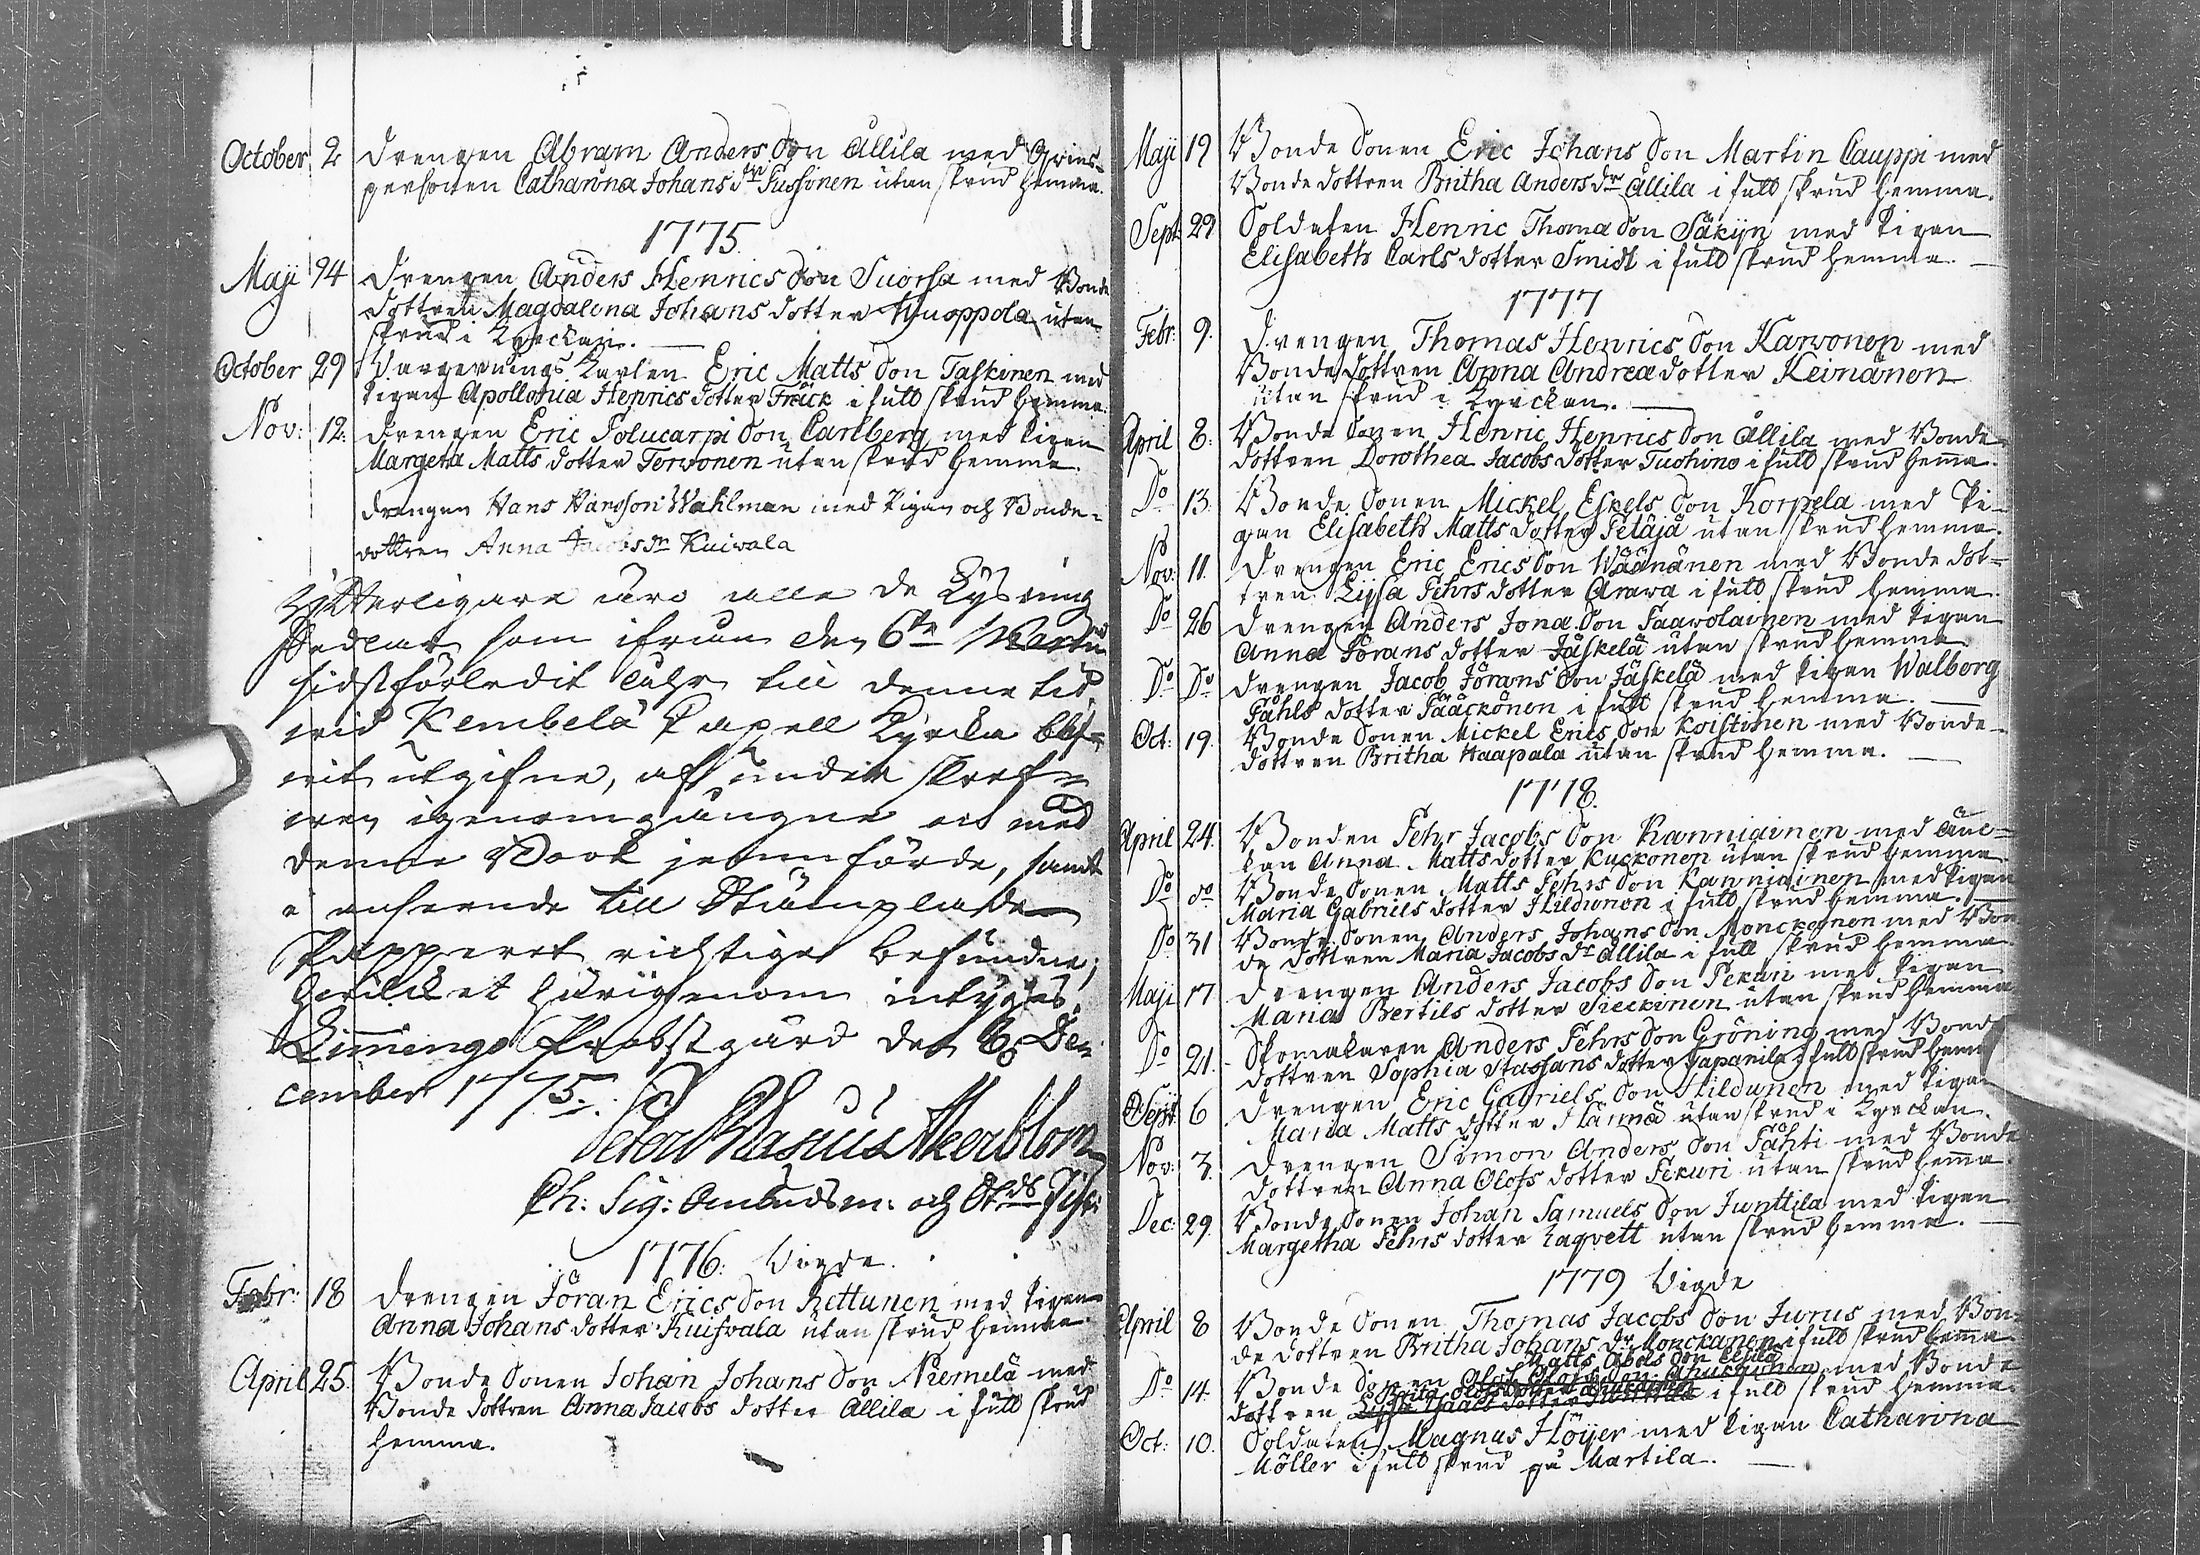 October 2 Drengen Abram Anders Son Allila med Qvins-
personen Catharina Johans dr Sussonen utan skrud hemma.
1775.
Maji 14 Drengen Anders Henrics Son Suorsa med Bonde
dottren Magdalena Johans dotter Huoppola utan
skrud i Kyrckan.
October 29 Wargerings Karlen Eric Matts Son Taskinen med
Pigan Apollonia Henrics dotter Fräck i full skrud hemma.
Nov: 12. Drengen Eric Polucarpi Son Carlberg med Pigan
Margeta Matts dotter Terwonen utan skrud hemma.
Drengen Hans Hansson Wahlman med Pigan och Bonde-
dottren Anna Jacobs dr Kuiwala
Ytterligare äro alla de Lysning
Sedlar som ifrån den 6te Martii
sidstförledit åhr till denna tid
wid Kembelä Capell Kyrcka blif-
wit utgifne, af underskref-
wen igenomgångne och med
denne Book jemnförde, samt
i anseende till Stämplade
Papperet richtige befundne,
hwilket härigenom intygas.
Limingo Probstgård den 6. De-
cember 1775.
Peter Erasmus Akerblom
Ch: Sig: Ombudsm: och
1776. Vigde.
Febr: 18 Drengen Jöran Erics Son Kettunen med Pigan
Anna Johans dotter Kuiswala utan skrud hemma
April 25. Bonde Sonen Johan Johans Son Niemelä med
Bonde dottren Anna Jacobs dotter Allila i full skrud
hemma.
Maji 19 Bonde Sonen Eric Johans Son Martin Cauppi med
Bonde dottren Britha Anders dr Allila i full skrud hemma.
Sept: 29 Soldaten Henric Thoma Son Säkyn med Pigan
Elisabeth Carls dotter Smidt i full skrud hemma.
1777
Febr: 9. Drengen Thomas Henrics Son Karvonen med
Bonde dottren Anna Andrea dotter Keinänen
utan skrud i Kyrckan.
April 8. Bonde Sonen Henric Henrics Son Allila med Bonde-
dottren Dorothea Jacobs dotter Tuohino i full skrud hemma.
Do 13. Bonde Sonen Mickel Eskels Son Korpela med Pi-
gan Elisabeth Matts dotter Petäjä utan skrud hemma.
Nov: 11. Drengen Eric Erics Son Wäänänen med Bonde dot-
tren Lijsa Pehrs dotter Arawa i full skrud hemma.
Do 26 Drengen Anders Jona Son Paawolainen med Pigan
Anna Jörans dotter Jäskelä utan skrud hemma
Do Do Drengen Jacob Jörans Son Jäskelä med Pigan Walborg
Påhls dotter Pääckönen i full skrud hemma.
Oct: 19. Bonde Sonen Mickel Erics Son Koistinen med Bonde-
dottren Britha Haapala utan skrud hemma.
1778.
April 24. Bonden Pehr Jacobs Son Kawniainen med Änc-
kan Anna Matts dotter Kuckonen utan skrud hemma
Do do Bonde Sonen Matts Pehrs Son Kawniainen med Pigan
Maria Gabriels dotter Hildunen i full skrud hemma.
Do 31 Bonde Sonen Anders Johans Son Monckonen med Bon-
de dottren Maria Jacobs dr Allila i full skrud hemma.
Maji 17 Drengen Anders Jacobs Son Pekuri med Pigan
Maria Bertils dotter Sieckinen utan skrud hemma
Do 21. Skomakaren Anders Pehrs Son Gröning med Bonde
dottren Sophia Staffans dotter Tapanila i full skrud hem
Sept 6 Drengen Eric Gabriels Son Hildunen med Pigan
Maria Matts dotter Härmä utan skrud i Kyrckan.
Nov: 3. Drengen Simon Anders Son Pähti med Bonde
dottren Anna Olofs dotter Pekuri utan skrud hemma.
Dec: 29. Bonde Sonen Johan Samuels Son Junttila med Pigan
Margetha Pehrs dotter Lagvett utan skrud hemma.
1779 Vigde
April 8 Bonde Sonen Thomas Jacobs Son Jurus med Bon-
de dottren Britha Johans dr Monckanen i full skrud hemma
Matts Abels Son Allila
Do 14. Bonde Sonen med Bonde
dottren i full skrud hemma.
Oct: 10. Soldaten Magnus Höyer med Pigan Catharina
Möller i full skrud på Martila.